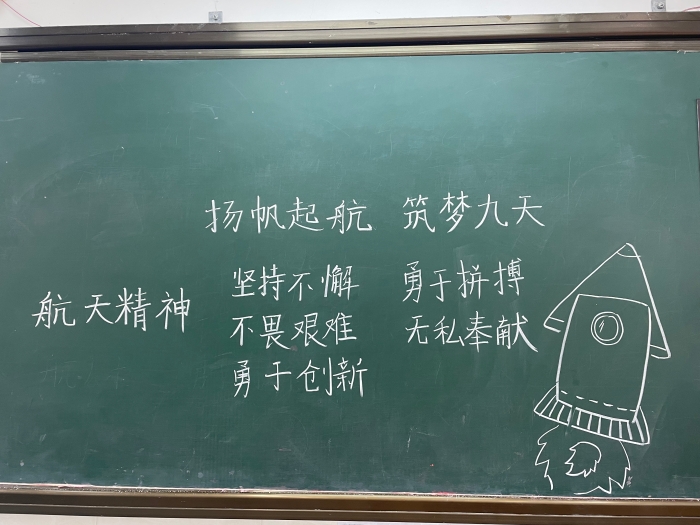 扬帆起航 筑梦九天
航天精神
坚持不懈 勇于拼搏
不畏艰难 无私奉献
勇于创新